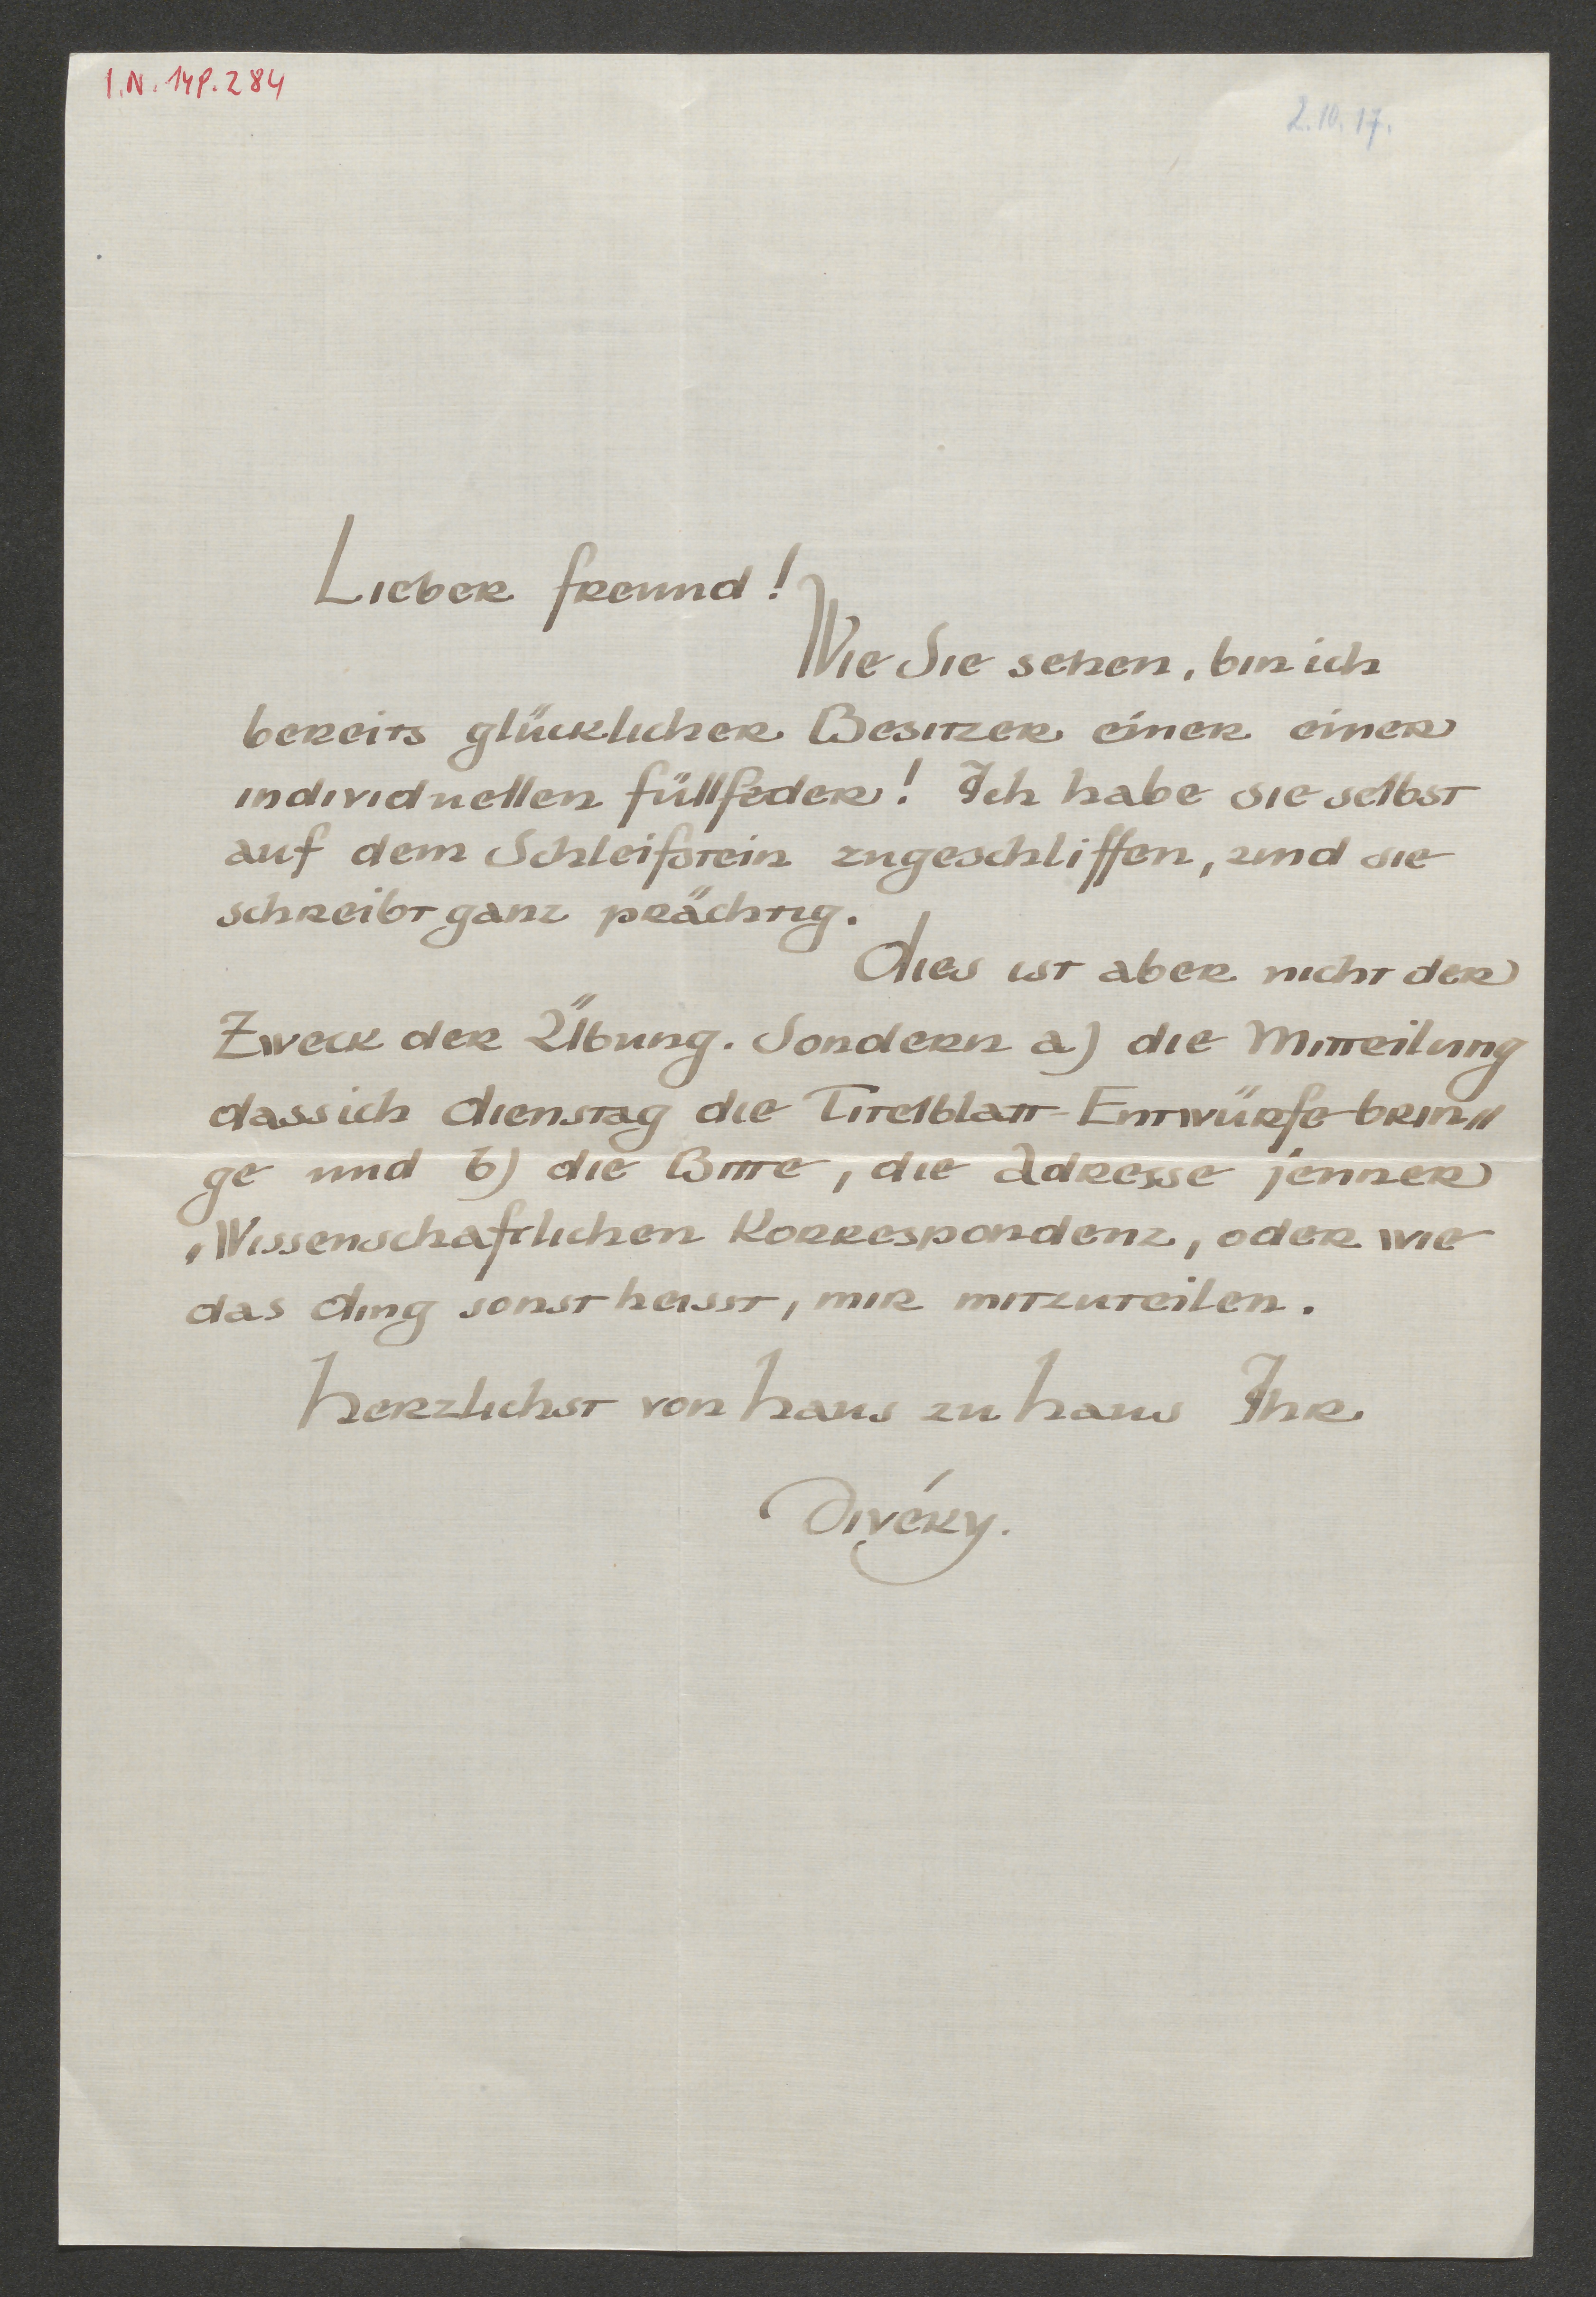 I.N. 149.284
2.10.17.
Lieber Freund!
Wie Sie sehen, bin ich
bereits glücklicher Besitzer einer einer
individuellen Füllfeder! Ich habe sie selbst
auf dem Schleifstein zugeschliffen, und sie
schreibt ganz prächtig.
Dies ist aber nicht der
Zweck der Übung. Sondern a) die Mitteilung
dass ich Dienstag die Titelblatt-Entwürfe brin„
ge und b) die Bitte, die Adresse jenner
„Wissenschaftlichen Korrespondenz, oder wie
das Ding sonst heisst, mir mitzuteilen.
Herzlichst von Haus zu Haus Ihr
Divéky.